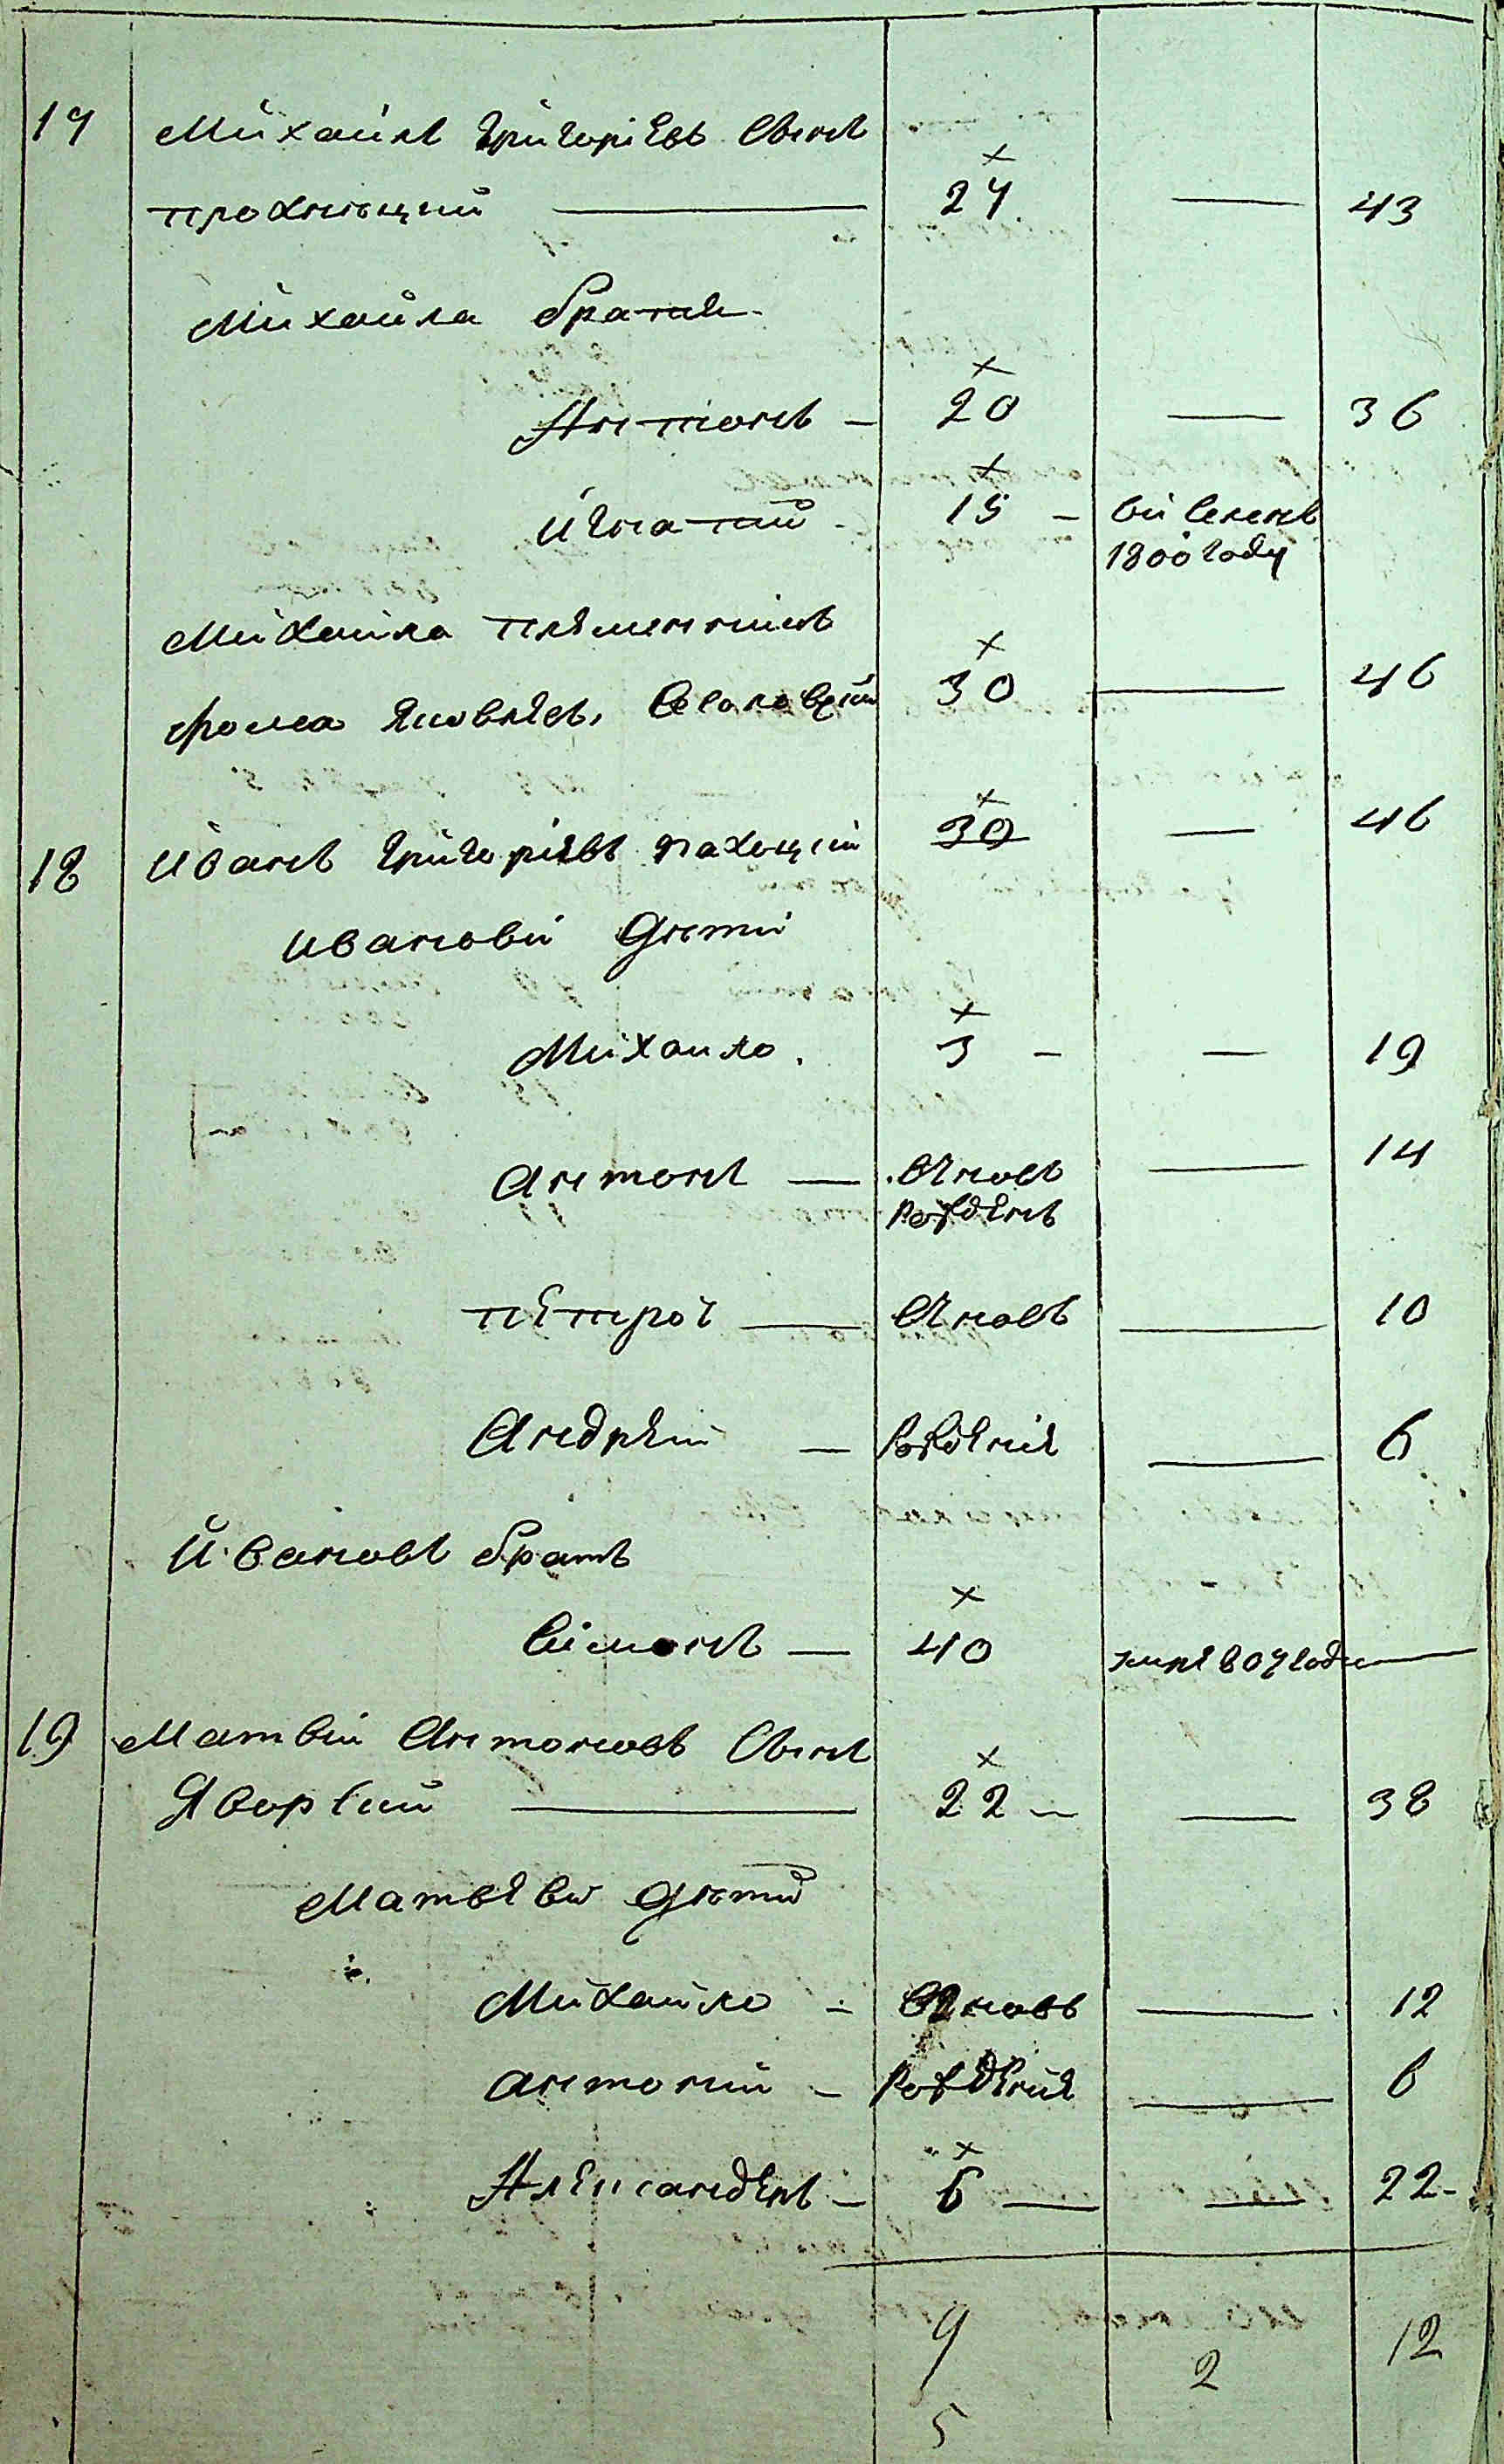 17 Михаилъ Григоріевъ Свенъ
прохницкий — 27 — 43
Михаила братя
Антонъ — 20 — 36
Игнатий — 15 — виселенъ
1800 году
Михаила племенникъ
Фома Яковлевъ, 30 — 46
18 Иванъ Григоріевъ 30 — 46
Ивановы дѣти
Михаило . 3 — — 19
Антонъ — вновь — 14
рожденъ
Петро — вновь — 10
Андрей — рожденіе — 6
Ивановъ братъ
Симонъ — 40 умре 807 году —
19 Матвій Антоновъ Свенъ
Яворский — 22 — — 38
Матвеви дѣти
Михайло — вновь — 12
антоній — рожденіе — 6
Александеръ — 6 — — 22 -
9 2 12
5